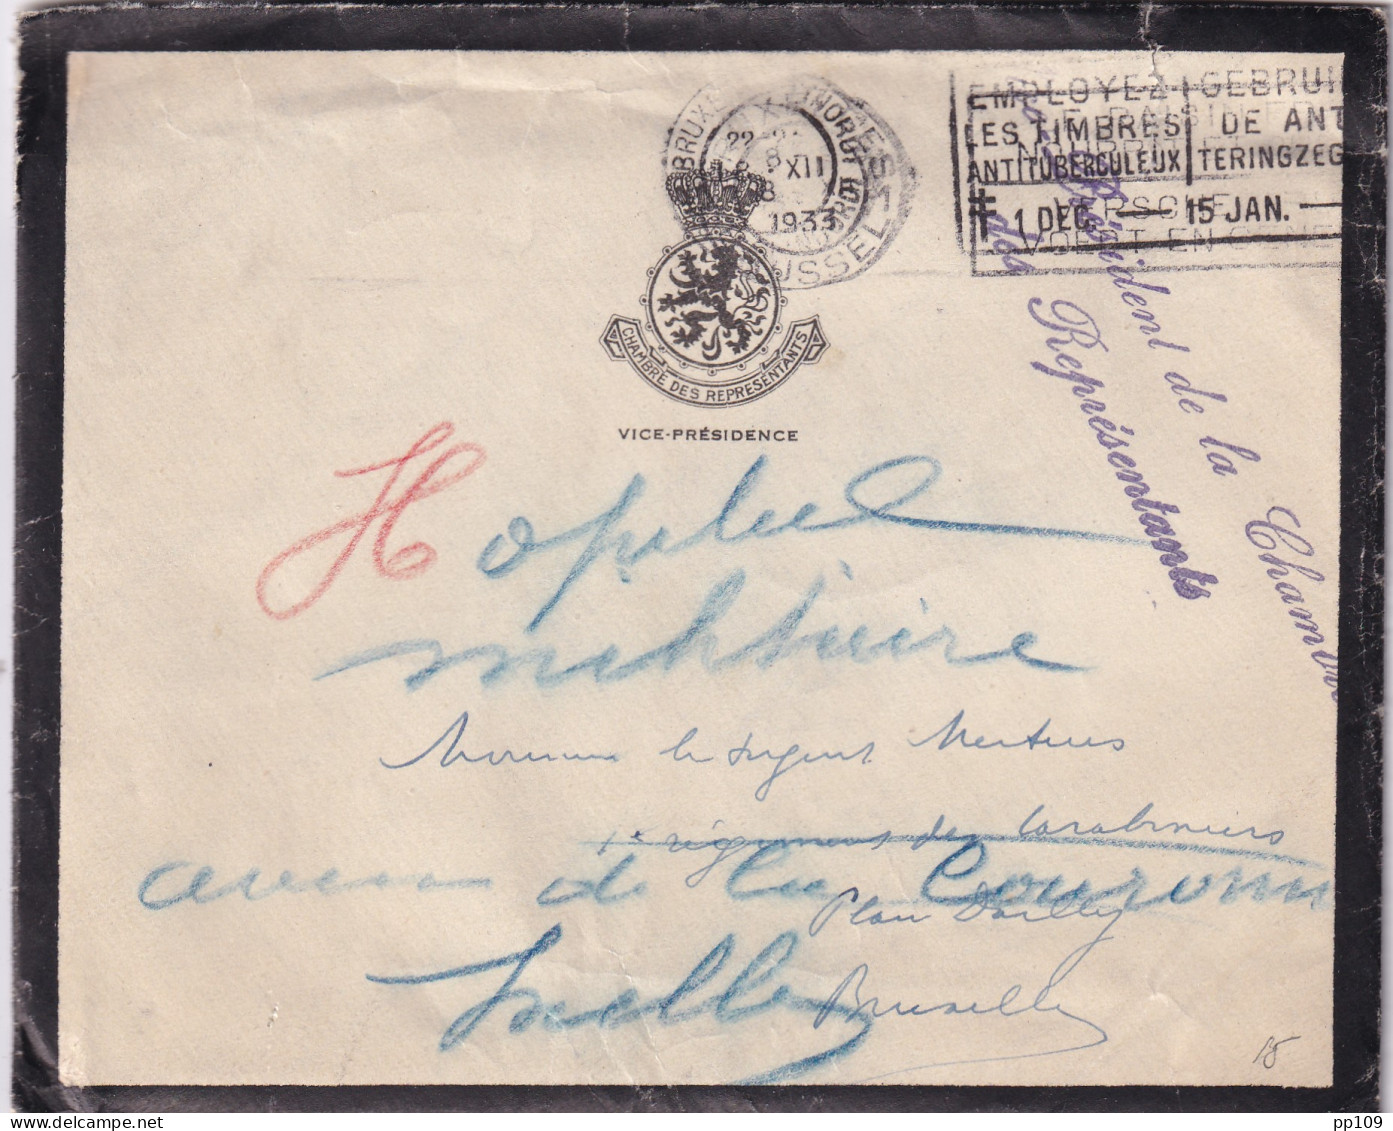 EMPLOYEZ
LES TIMBRES
ANTITUBERCULEUX
1 DEC. — 15 JAN.
GEBRUI
DE ANT
TERINGZEG
VOEDT EN
BRUXE
22
XII
1933
USSEL
(NORD)
CHAMBRE DES REPRÉSENTANTS
VICE-PRÉSIDENCE
Président de la Chambre
des Représentants
Hopital
militaire
Monsieur le sergent Mertens
1e régiment des Carabiniers
avenue de la Couronne
Plaine Dailly
Ixelles
Bruxelles
15
pp109